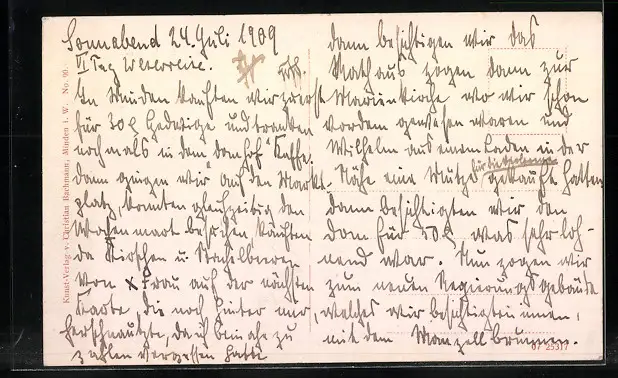 Sonnabend 24. Juli 1909
VI Tag Weserreise.
In Minden kauften wir zuerst
für 30 ₰ Gebäcke und tranken
nochmals in dem Domhof Kaffe.
Dann gingen wir auf den Markt-
platz, konnten gleichzeitig den
Wochenmarkt besehen, kauften
da Kirschen u Stachelbeeren
von x Frau auf der nächsten
Karte, die noch hinter mir
herschnauzte, da ich beinahe zu
zahlen vergessen hatte
dann besichtigen wir das
Rathaus zogen dann zur
Marienkirche wo wir schon
vordem gewesen waren und
Wilhelm aus einem Laden in der
Nähe eine Mütze gekauft hatten
dann besichtigten wir den
Dom für 50 ₰ was sehr loh-
nend war. Nun zogen wir
zum neuen Regierungsgebäude
welches wir besichtigten innen,
mit dem Monzellbrunnen.
Kunst-Verlag v. Christian Bachmann, Minden i. W. No. 90.
07 25317